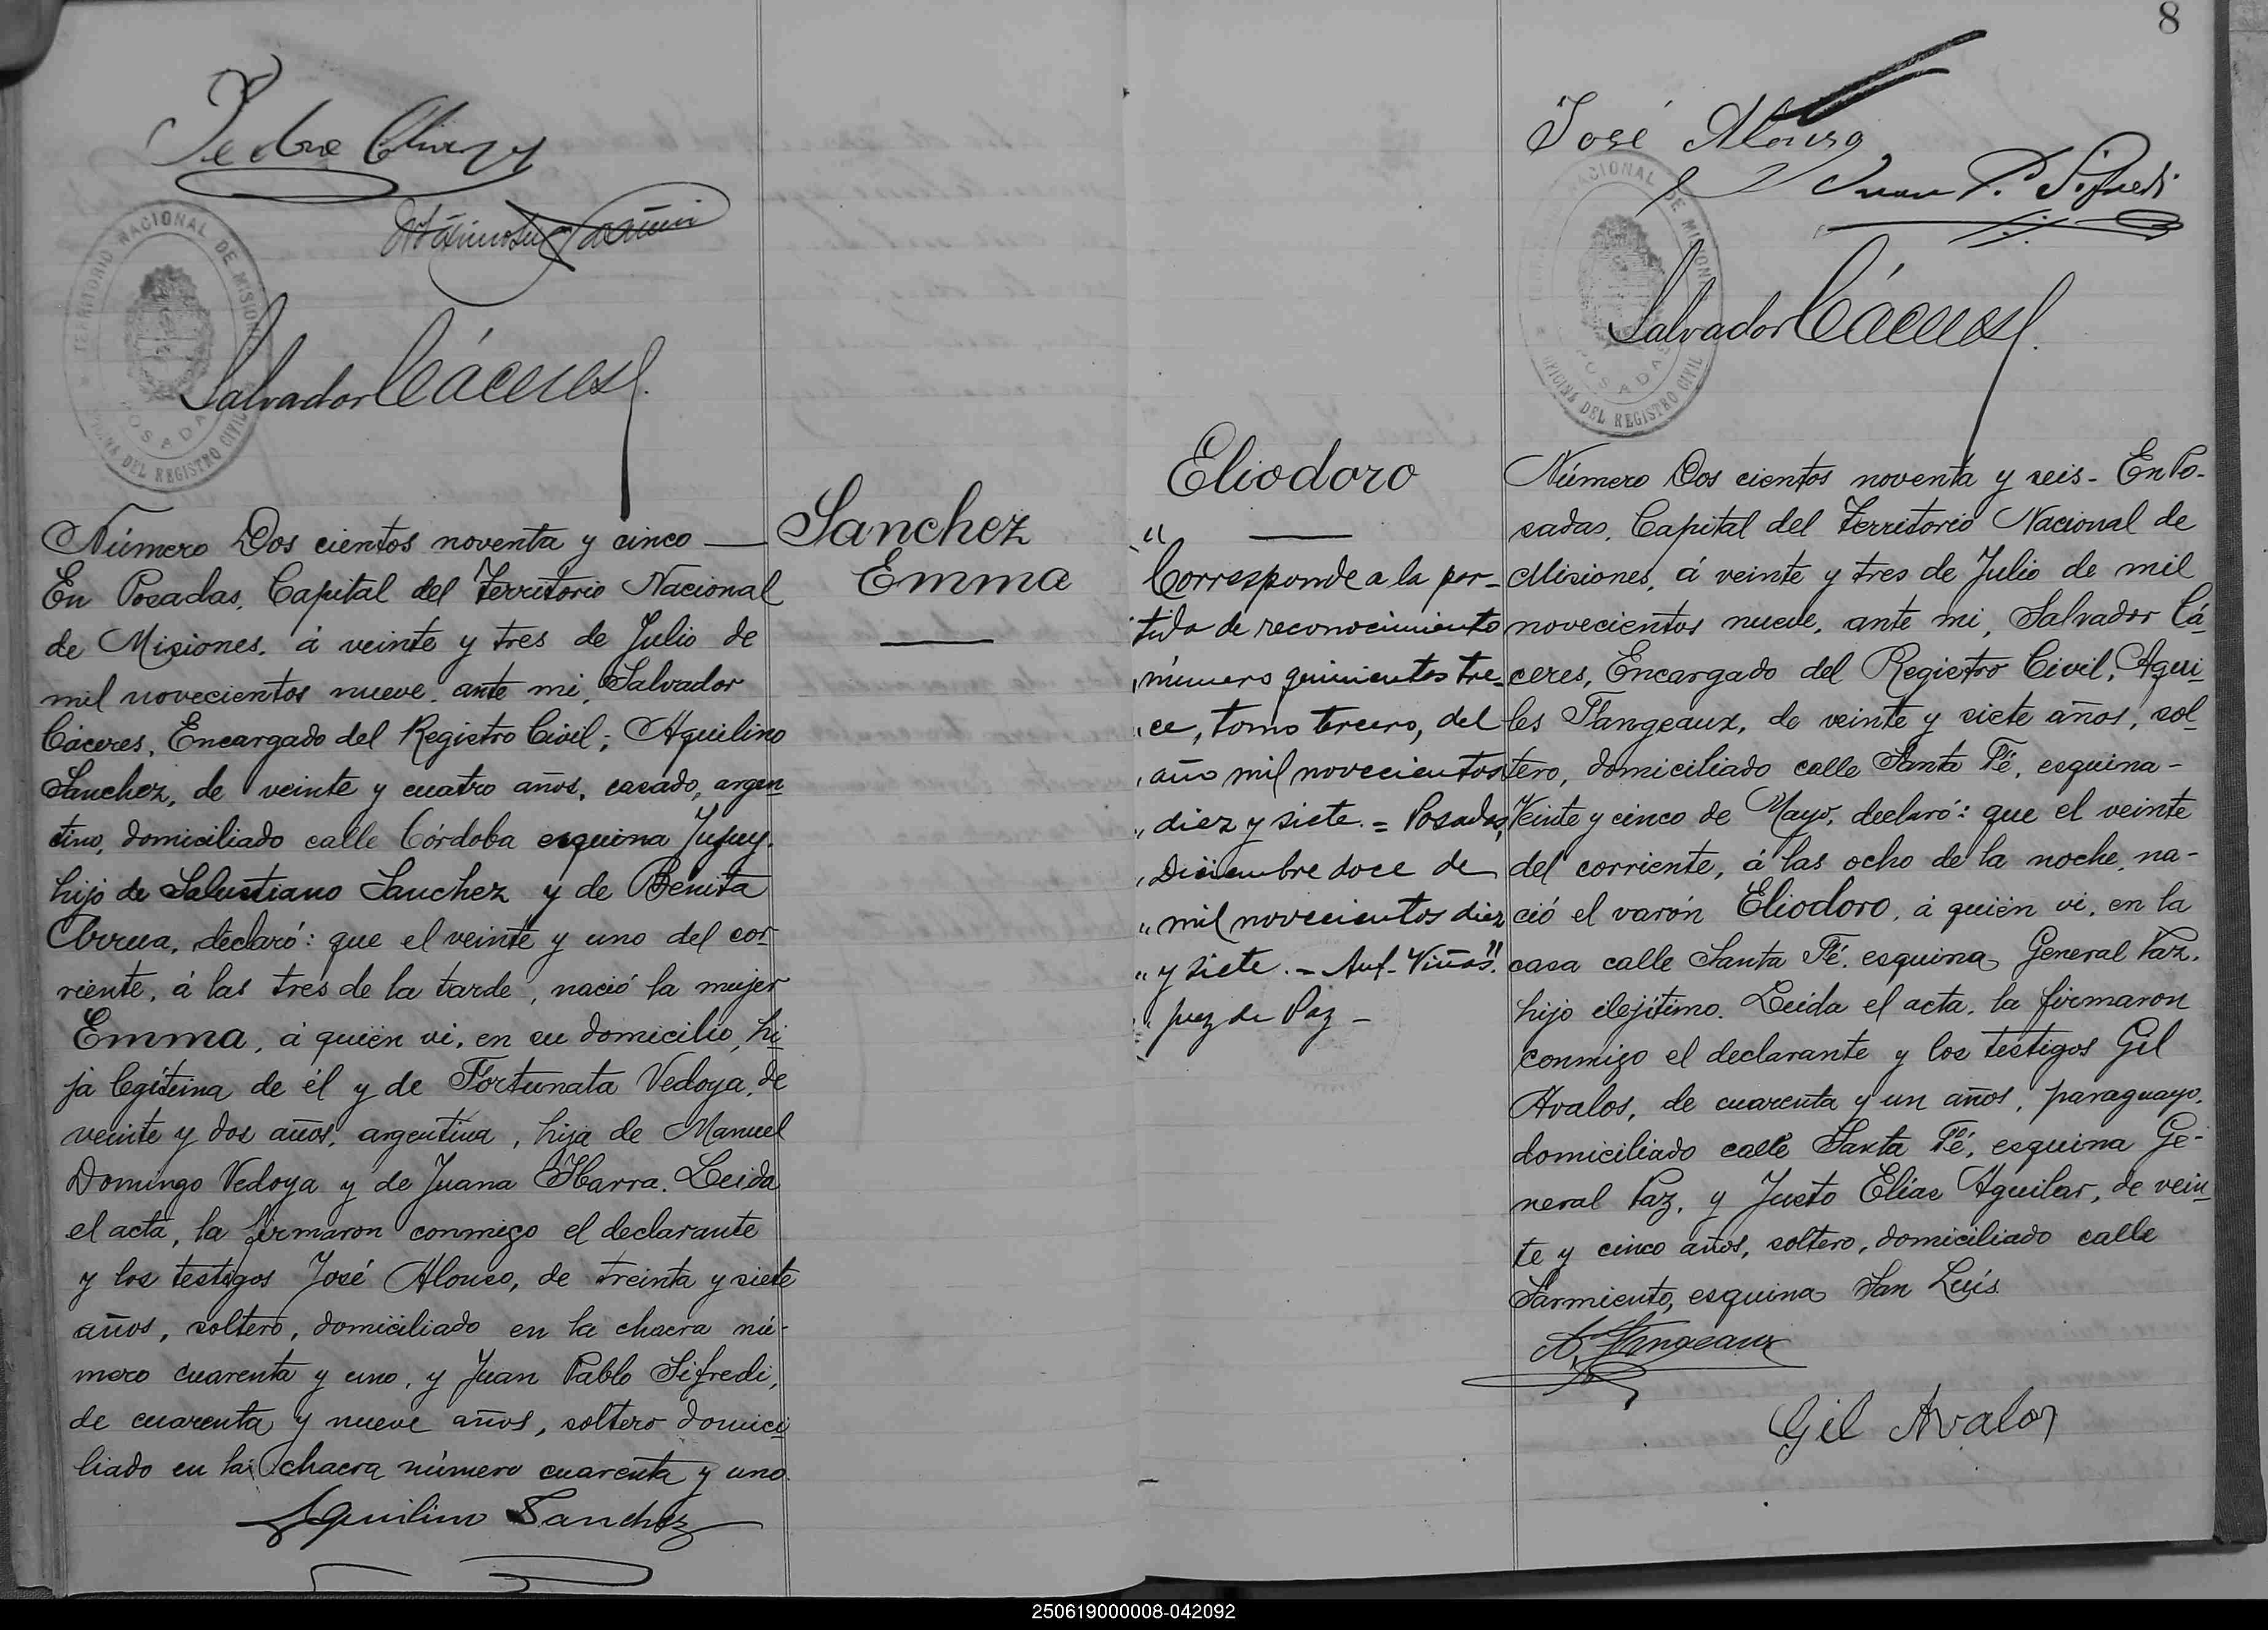 Salvador Cáceres
TERRITORIO NACIONAL DE MISIONES
POSADAS
OFICINA DEL REGISTRO CIVIL
Número Dos cientos noventa y cinco —
En Posadas, Capital del Territorio Nacional
de Misiones, á veinte y tres de Julio de
mil novecientos nueve, ante mi, Salvador
Cáceres, Encargado del Registro Civil; Aquilino
Sanchez, de veinte y cuatro años, casado, argen
tino, domiciliado calle Córdoba esquina Jujuy,
hijo de Salustiano Sanchez y de Benita
Arrua, declaró: que el veinte y uno del cor
riente, á las tres de la tarde, nació la mujer
Emma, á quién vi, en su domicilio, hi
ja legítima de él y de Fortunata Vedoya, de
veinte y dos años, argentina, hija de Manuel
Domingo Vedoya y de Juana Ibarra. Leida
el acta, la firmaron conmigo el declarante
y los testigos José Alonso, de treinta y siete
años, soltero, domiciliado en la chacra nú-
mero cuarenta y uno, y Juan Pablo Sifredi,
de cuarenta y nueve años, soltero domici
liado en la chacra número cuarenta y uno.
Aquilino Sanchez
Sanchez
Emma
8
José Alonso
Juan P. Sifredi
TERRITORIO NACIONAL DE MISIONES
POSADAS
OFICINA DEL REGISTRO CIVIL
Salvador Cáceres
Eliodoro
"Corresponde a la par-
tida de reconocimiento
número quinientos tre-
"ce, tomo tercero, del
año mil novecientos
"diez y siete. = Posadas,
Diciembre doce de
"mil novecientos diez
"y siete. - Ant. Viñas".
"juez de Paz -
Número Dos cientos noventa y seis - En Po-
sadas, Capital del Territorio Nacional de
Misiones, á veinte y tres de Julio de mil
novecientos nueve, ante mi, Salvador Cá-
ceres, Encargado del Registro Civil, Aqui
les Flangeaux, de veinte y siete años, sol
tero, domiciliado calle Santa Fé, esquina -
Veinte y cinco de Mayo, declaró: que el veinte
del corriente, á las ocho de la noche, na-
ció el varón Eliodoro, á quién vi, en la
casa calle Santa Fé, esquina General Paz,
hijo ilejítimo. Leida el acta, la firmaron
conmigo el declarante y los testigos Gil
Avalos, de cuarenta y un años, paraguayo,
domiciliado calle Santa Fé, esquina Ge-
neral Paz, y Justo Elías Aguilar, de vein
te y cinco años, soltero, domiciliado calle
Sarmiento, esquina San Luís.
A. Flangeaux
Gil Avalos
250619000008-042092